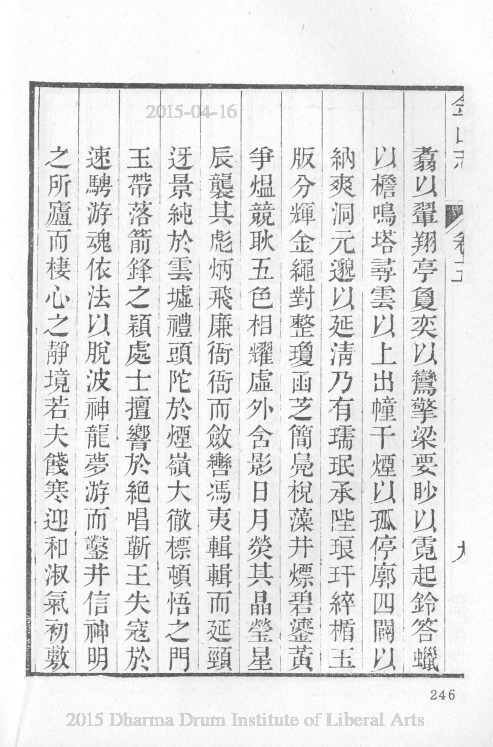 金山志 卷十五 九
翥以翬翔亭敻奕以鸞擎梁要眇以霓起鈴答蠟
以檐鳴塔尋雲以上出幢干煙以孤停廓四闢以
納爽洞元邈以延淸乃有瓀珉承陛琅玕綷楯玉
版分輝金繩對整瓊函芝簡鳧梲藻井熛碧鎏黃
爭煴競耿五色相耀虛外含影日月熒其晶瑩星
辰襲其彪炳飛廉衙衙而斂轡馮夷輯輯而延頸
迓景純於雲墟禮頭陀於煙嶺大徹標頓悟之門
玉帶落箭鋒之穎處士擅響於絕唱蘄王失寇於
速騁游魂依法以脫波神龍夢游而鑿井信神明
之所廬而棲心之靜境若夫餞寒迎和淑氣初敷
246
2015-04-16
2015 Dharma Drum Institute of Liberal Arts